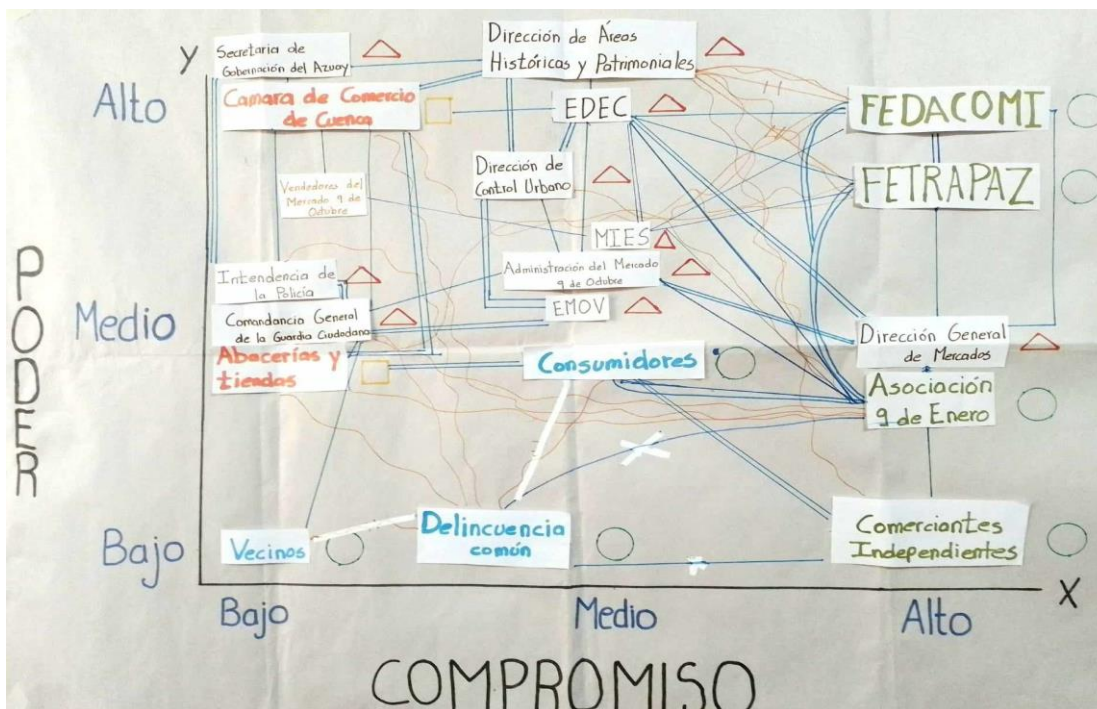 Y
PODER
Alto
Medio
Bajo
Secretaria de
Gobernación del Azuay
Dirección de Áreas
Históricas y Patrimoniales
Camara de Comercio
de Cuenca
EDEC
FEDACOMI
Vendedores del
Mercado 9 de
Octubre
Dirección de
Control Urbano
FETRAPAZ
MIES
Intendencia de
la Policía
Administración del Mercado
9 de Octubre
EMOV
Comandancia General
de la Guardia Ciudadana
Dirección General
de Mercados
Abacerías y
tiendas
Consumidores
Asociación
9 de Enero
Vecinos
Delincuencia
común
Comerciantes
Independientes
X
Bajo
Medio
Alto
COMPROMISO